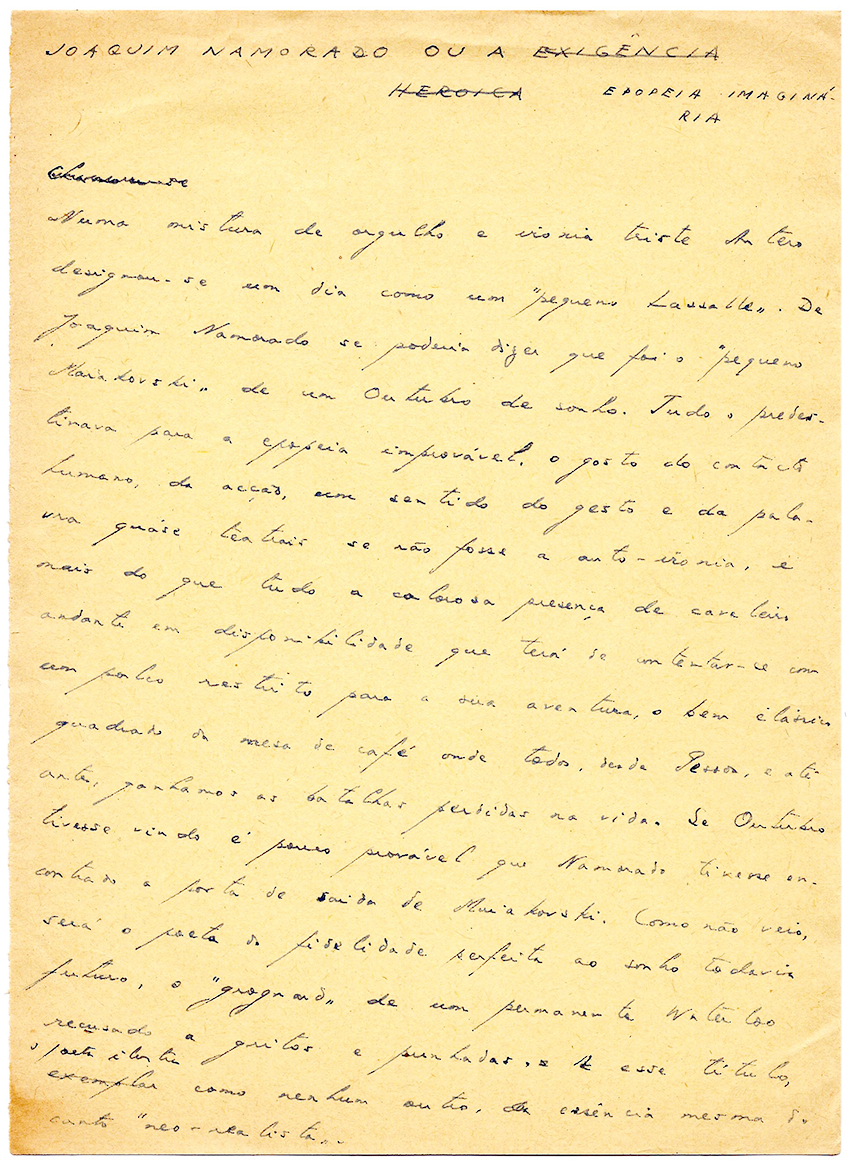 JOAQUIM NAMORADO OU A EXIGÊNCIA
HEROICA EPOPEIA IMAGINÁ-
RIA
Numa mistura de orgulho e ironia triste Antero
designou-se um dia como um "pequeno Lassalle„. De
Joaquim Namorado se poderia dizer que foi o "pequeno
Maiakovski„ de um Outubro de sonho. Tudo o predes-
tinava para a epopeia improvável, o gosto do contacto
humano, da acção, um sentido do gesto e da pala-
vra quáse teatrais se não fosse a auto-ironia, e
mais do que tudo a calorosa presença de cavaleiro
andante em disponibilidade que terá de contentar-se com
um palco restrito para a sua aventura, o bem clássico
quadrado da mesa de café onde todos, desde Pessoa, e até
antes, ganhamos as batalhas perdidas na vida. Se Outubro
tivesse vindo é pouco provável que Namorado tivesse en-
contrado a porta de saida de Maiakovski. Como não veio,
será o poeta da fidelidade perfeita ao sonho todavia
futuro, o "grognard„ de um permanente Waterloo
recusado a gritos e punhadas, e a esse título,
o poeta
exemplar como nenhum outro, da essência mesma do
canto "neo-realista„.